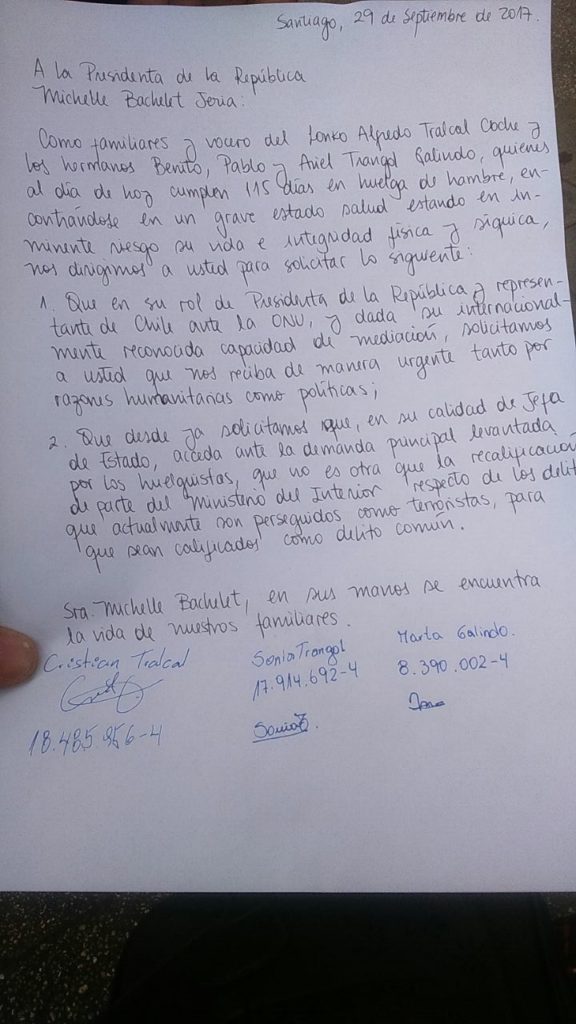 Santiago, 29 de Septiembre de 2017.
A la Presidenta de la República
Michelle Bachelet Jeria:
Como familiares y vocero del Lonko Alfredo Tralcal Coche y
los hermanos Benito, Pablo y Ariel Trangol Galindo, quienes
al día de hoy cumplen 115 días en huelga de hambre, en-
contrándose en un grave estado salud estando en in-
minente riesgo su vida e integridad física y síquica,
nos dirigimos a usted para solicitar lo siguiente:
1. Que en su rol de Presidenta de la República y represen-
tante de Chile ante la ONU, y dada su internacional-
mente reconocida capacidad de mediación, solicitamos
a usted que nos reciba de manera urgente tanto por
razones humanitarias como políticas;
2. Que desde ya solicitamos que, en su calidad de Jefa
de Estado, acceda ante la demanda principal levantada
por los huelguistas, que no es otra que la recalificación
de parte del Ministerio del Interior respecto de los delit
que actualmente son perseguidos como terroristas, para
que sean calificados como delito común.
Sra. Michelle Bachelet, en sus manos se encuentra
la vida de nuestros familiares.
Cristian Tralcal Sonia Trangol Marta Galindo.
17.914.692-4 8.390.002-4
Sonia